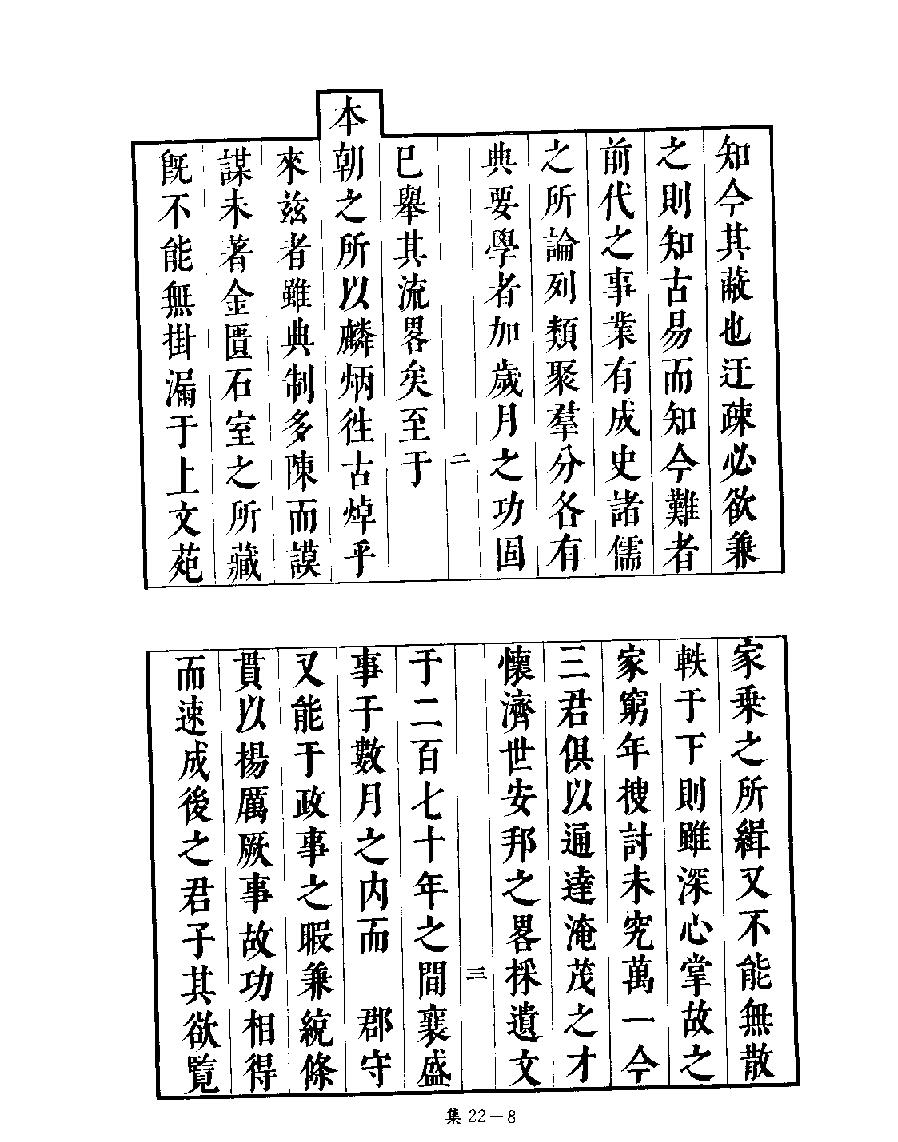 知今其蔽也迂疎必欲兼
之則知古易而知今難者
前代之事業有成史諸儒
之所論列類聚羣分各有
典要學者加歲月之功固
二
已舉其流畧矣至于
本朝之所以麟炳徃古焯乎
來兹者雖典制多陳而謨
謀未著金匱石室之所藏
旣不能無掛漏于上文苑
家乗之所緝又不能無散
軼于下則雖深心掌故之
家窮年搜討未究萬一今
三君俱以通達淹茂之才
懷濟世安邦之畧採遺文
三
于二百七十年之間襄盛
事于數月之内而 郡守
又能于政事之暇兼統條
貫以揚厲厥事故功相得
而速成後之君子其欲覽
集22－8